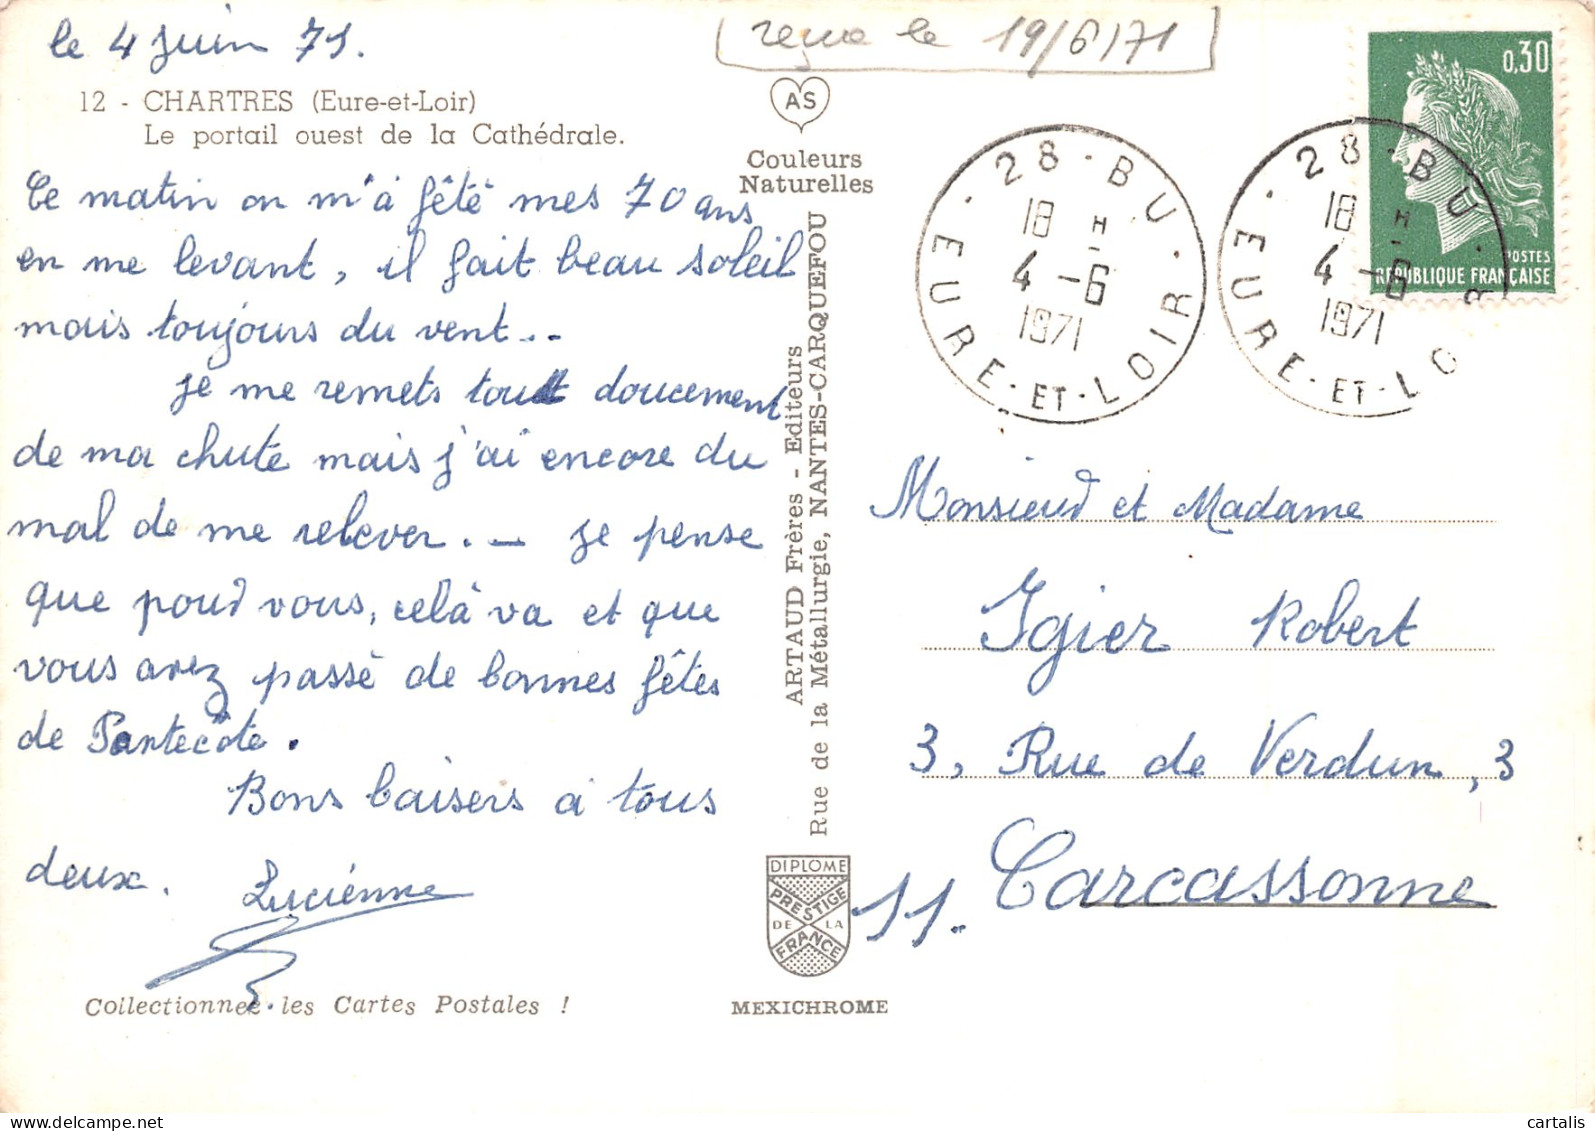 le 4 juin 71.
reçue le 19/6/71
12 - CHARTRES (Eure-et-Loir)
Le portail ouest de la Cathédrale.
Ce matin on m'à fêté mes 70 ans
en me levant, il fait beau soleil
mais toujours du vent...
je me remets tout doucement
de ma chute mais j'ai encore du
mal de me relever. — je pense
que pour vous, celà va et que
vous avez passé de bonnes fêtes
de Pentecôte.
Bons baisers à tous
deux. Lucienne
Collectionnez les Cartes Postales !
AS
Couleurs
Naturelles
ARTAUD Frères - Editeurs
Rue de la Métallurgie, NANTES-CARQUEFOU
DIPLOME
PRESTIGE
DE LA
FRANCE
MEXICHROME
28 - BU
18 H
4 - 6
1971
EURE-ET-LOIR
28 - BU
18 H
4 - 6
1971
EURE-ET-LOIR
0,30
POSTES
REPUBLIQUE FRANÇAISE
Monsieur et Madame
Igier Robert
3, Rue de Verdun, 3
11. Carcassonne
cartalis
delcampe.net